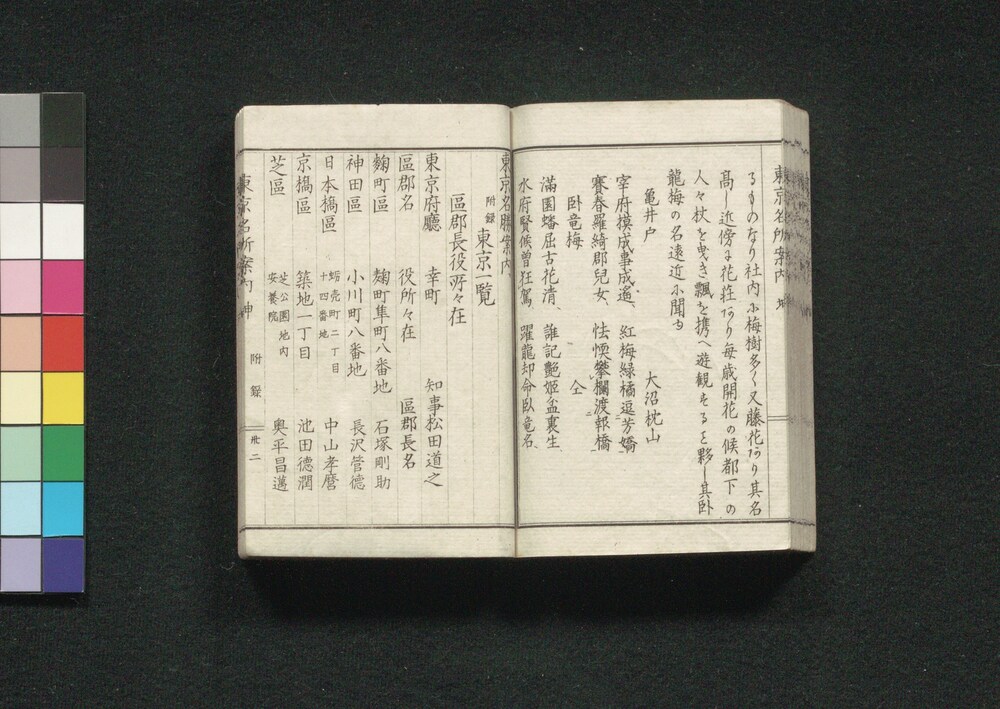 東京名所案内 坤
るものなり社内に梅樹多く又藤花あり其名
高し近傍に花荘あり毎歳開花の候都下の
人々杖を曳き瓢を携へ遊観するを夥し其臥
龍梅の名遠近に聞ゆ
亀井戸 大沼枕山
宰府摸成事成遙、紅梅緑橘逗芳嬌
賽春羅綺郡児女、怯慄攀欄渡郭橋
臥竜梅 仝
満園蟠屈古花清、誰記艶姫盆裏生
水府賢候曽狂駕 躍龍却命臥竜名
東京名勝案内
附録 東京一覧
區郡長役所々在
東京府廳 幸町 知事松田道之
區郡名 役所々在 區郡長名
麹町區 麹町隼町八番地 石塚剛助
神田區 小川町八番地 長沢管德
日本橋區 蛎売町二丁目十四番地 中山孝麿
京橋區 築地一丁目 池田德潤
芝區 芝公園地内安養院 奥平昌邁
東京名所案内 坤 附録 卅二